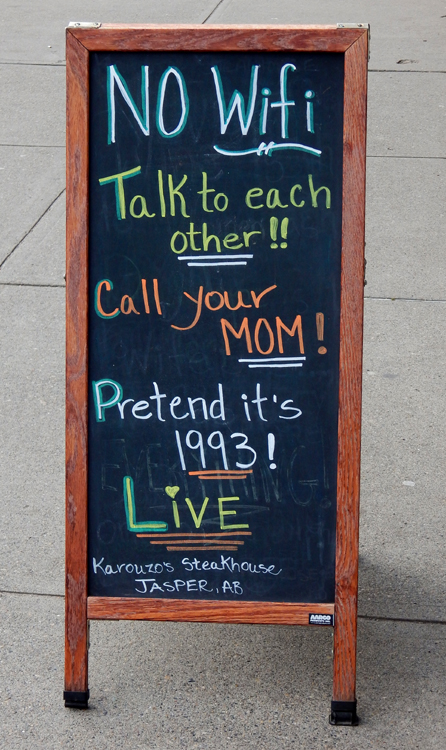 NO Wifi
Talk to each
other!!
Call your
MOM!
Pretend it's
1993!
LIVE
Karouzo's Steakhouse
JASPER, AB
AARCO